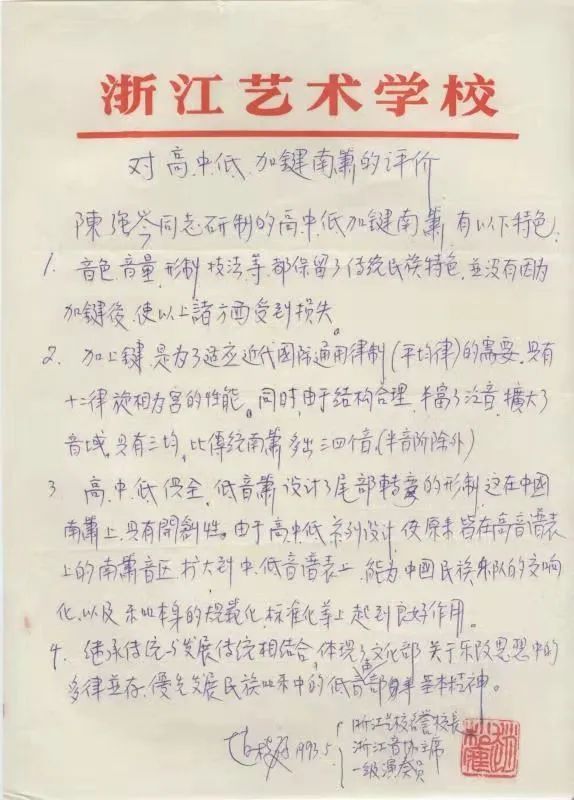 浙江艺术学校
对高、中、低、加键南萧的评价
陳强岑同志研制的高中低加键南萧有以下特色:
1. 音色、音量、形制、技法、等、都保留了传统民族特色,並没有因为
加键後,使以上諸方面受到损失。
2. 加上键,是为了适应近代国际通用律制(平均律)的需要。具有
十二律旋相为宫的性能。同时,由于结构合理,丰富了泛音,擴大了
音域,具有三均,比傳統南萧多出三四个音,(半音阶除外)
3 高、中、低俱全,低音萧设计了尾部轉变的形制,这在中國
南萧上,具有開創性。由于高中低系列设计,使原来皆在高音谱表
上的南萧音区,扩大到中、低音谱表上,能为中國民族乐队的交响
化,以及乐器本身的规范化、标准化等上起到良好作用。
4. 继承传统与发展传统相结合,体现了文化部关于乐改思想中的
多律並存、優先发展民族乐器中的低音部基本精神。
1993.5.
浙江艺校名誉校长
浙江音协主席
一级演奏员